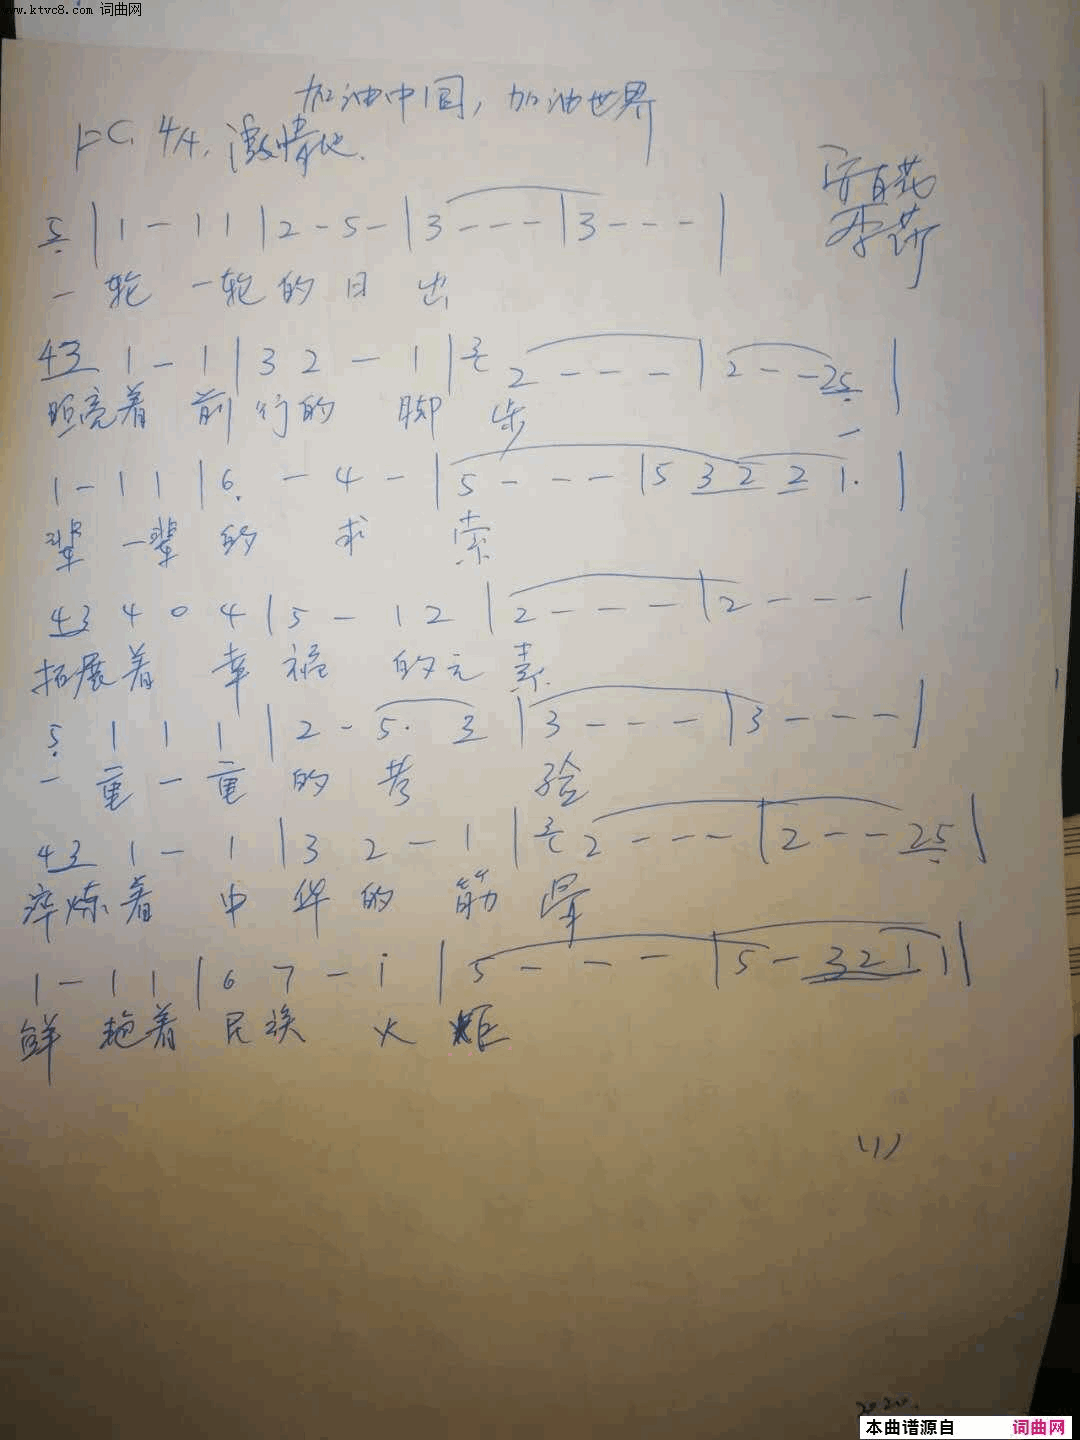 www.ktvc8.com 词曲网
加油中国，加油世界
1=C 4/4 激情地.
5 | 1 - 1 1 | 2 - 5 - | 3 - - - | 3 - - - |
一 轮 一轮的日 出
43 1 - 1 | 3 2 - 1 | 2 - - - | 2 - - 25 |
照亮着 前行的 脚 步 一
1 - 1 1 | 6 - 4 - | 5 - - - | 5 3 2 2 1. |
辈 一辈 的 求 索
43 4 0 4 | 5 - 1 2 | 2 - - - | 2 - - - |
拓展着 幸 福 的元 素
5 1 1 1 | 2 - 5. 3 | 3 - - - | 3 - - - |
一 重 一 重 的 考 验
43 1 - 1 | 3 2 - 1 | 2 - - - | 2 - - 25 |
淬炼着 中 华 的 筋
1 - 1 1 | 6 7 - i | 5 - - - | 5 - 3 2 1 1 |
着 民族 火 炬
(1)
2020.
本曲谱源自 词曲网